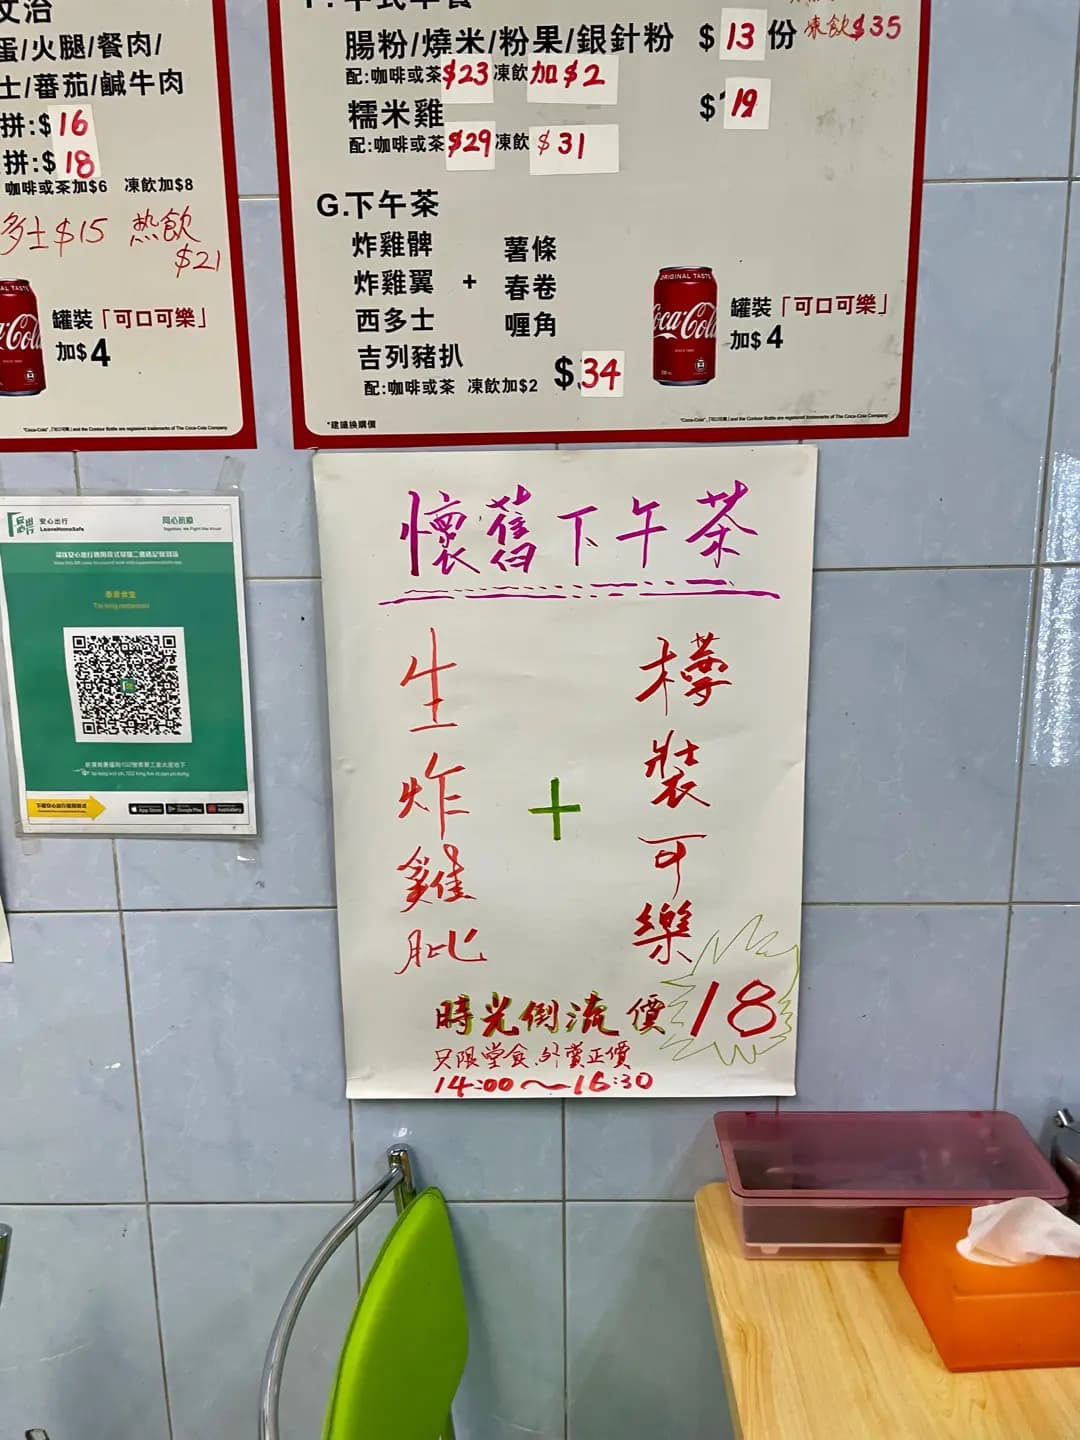 文治
蛋/火腿/餐肉/
士/蕃茄/鹹牛肉
拼:$16
拼:$18
咖啡或茶加$6 凍飲加$8
多士$15 熱飲
$21
罐裝「可口可樂」
加$4
腸粉/燒米/粉果/銀針粉 $13份 凍飲$35
配:咖啡或茶$23凍飲加$2
糯米雞 $19
配:咖啡或茶$29凍飲$31
G.下午茶
炸雞髀 薯條
炸雞翼 + 春卷
西多士 喱角
吉列豬扒
配:咖啡或茶 凍飲加$2 $34
ORIGINAL TASTE
Coca-Cola
罐裝「可口可樂」
加$4
*建議換購價
"Coca-Cola", 「可口可樂」 and the Contour Bottle are registered trademarks of The Coca-Cola Company.
安心出行
LeaveHomeSafe
同心抗疫
Together, We Fight the Virus!
App Store
Google Play
AppGallery
懷舊下午茶
生炸雞肶
+
樽裝可樂
時光倒流價 18
只限堂食.外賣正價
14:00~16:30